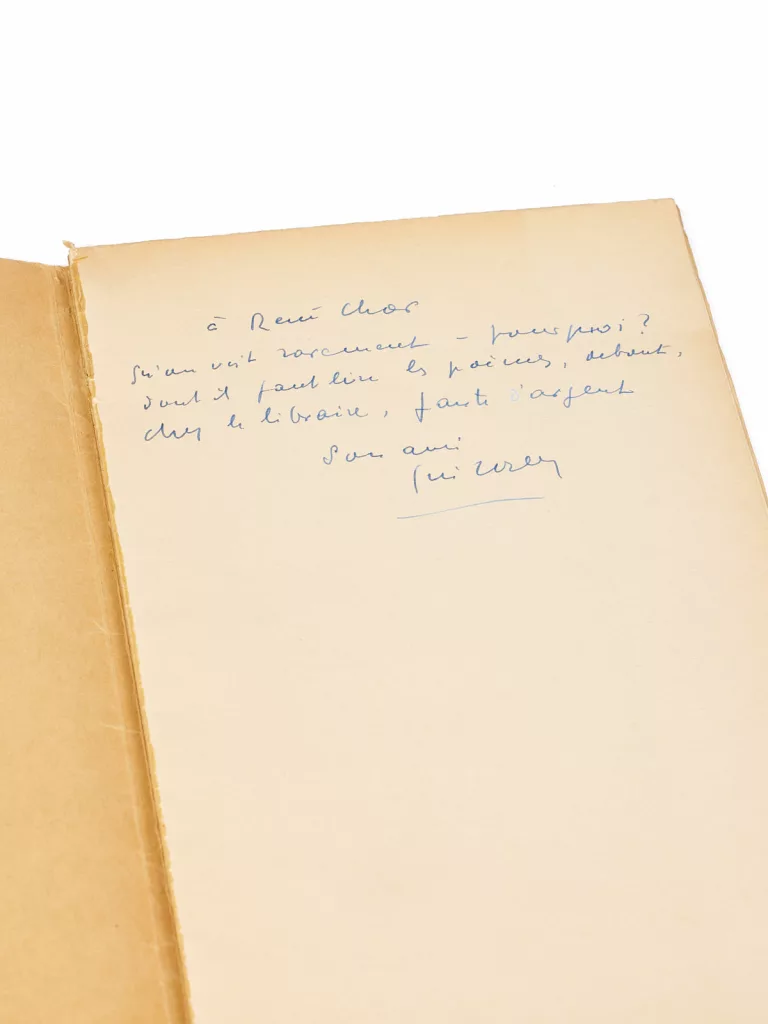 à René Char
qu'on voit rarement – pourquoi ?
dont il faut lire les poèmes, debout,
chez le libraire, faute d'argent
Son ami